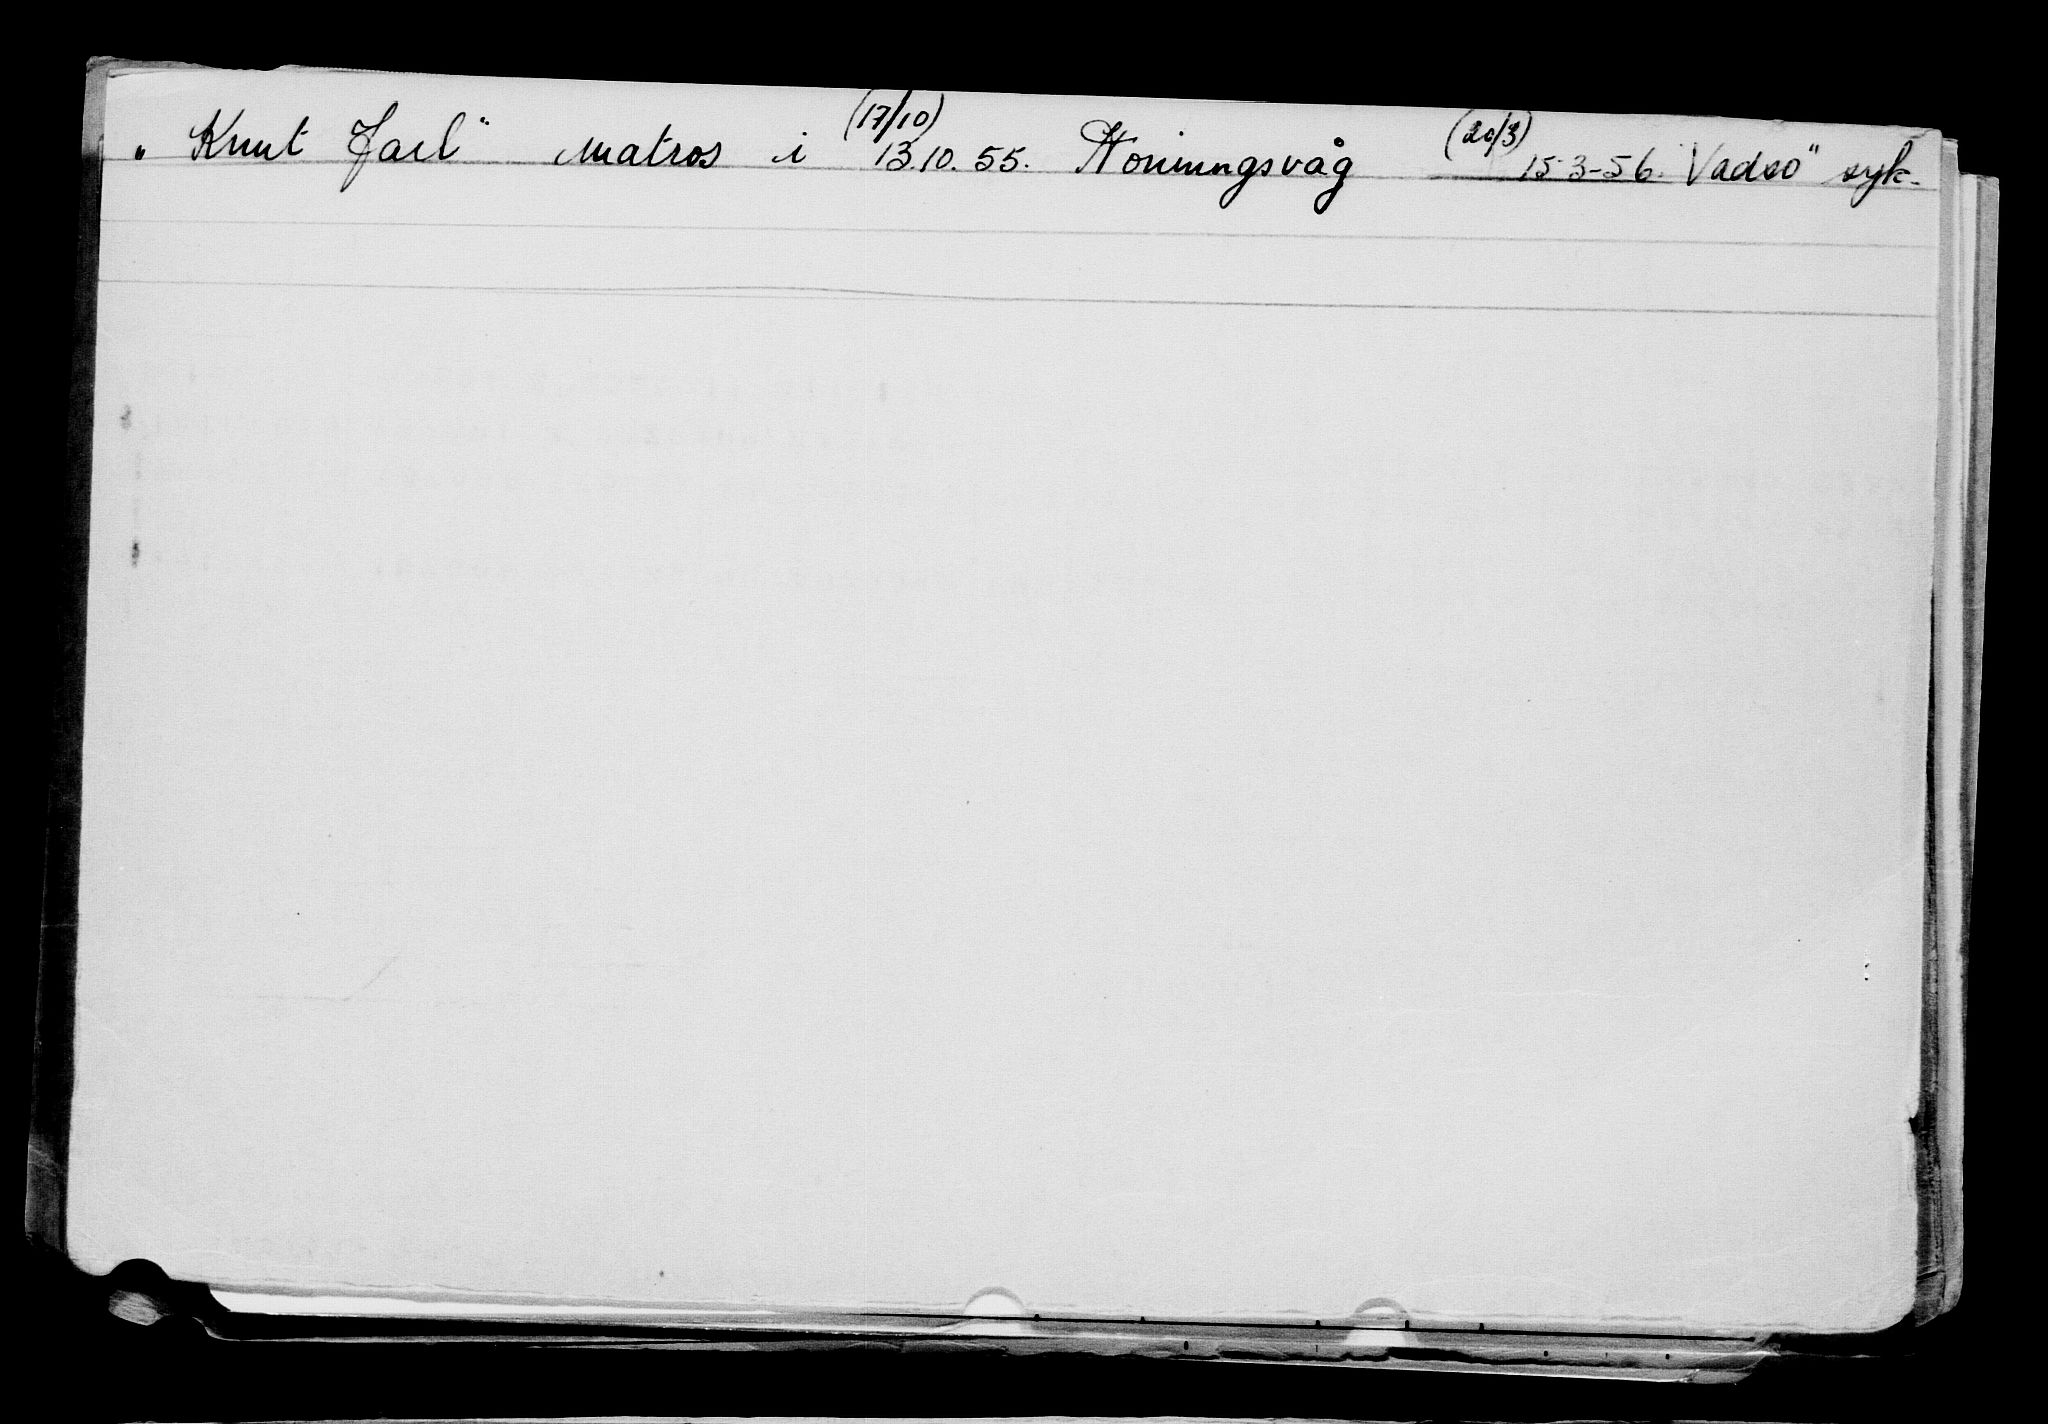 (17/10) (20/3)
„ Knut Jarl" Matros i 13.10.55. Honningsvåg 15-3-56. Vadsö" syk.